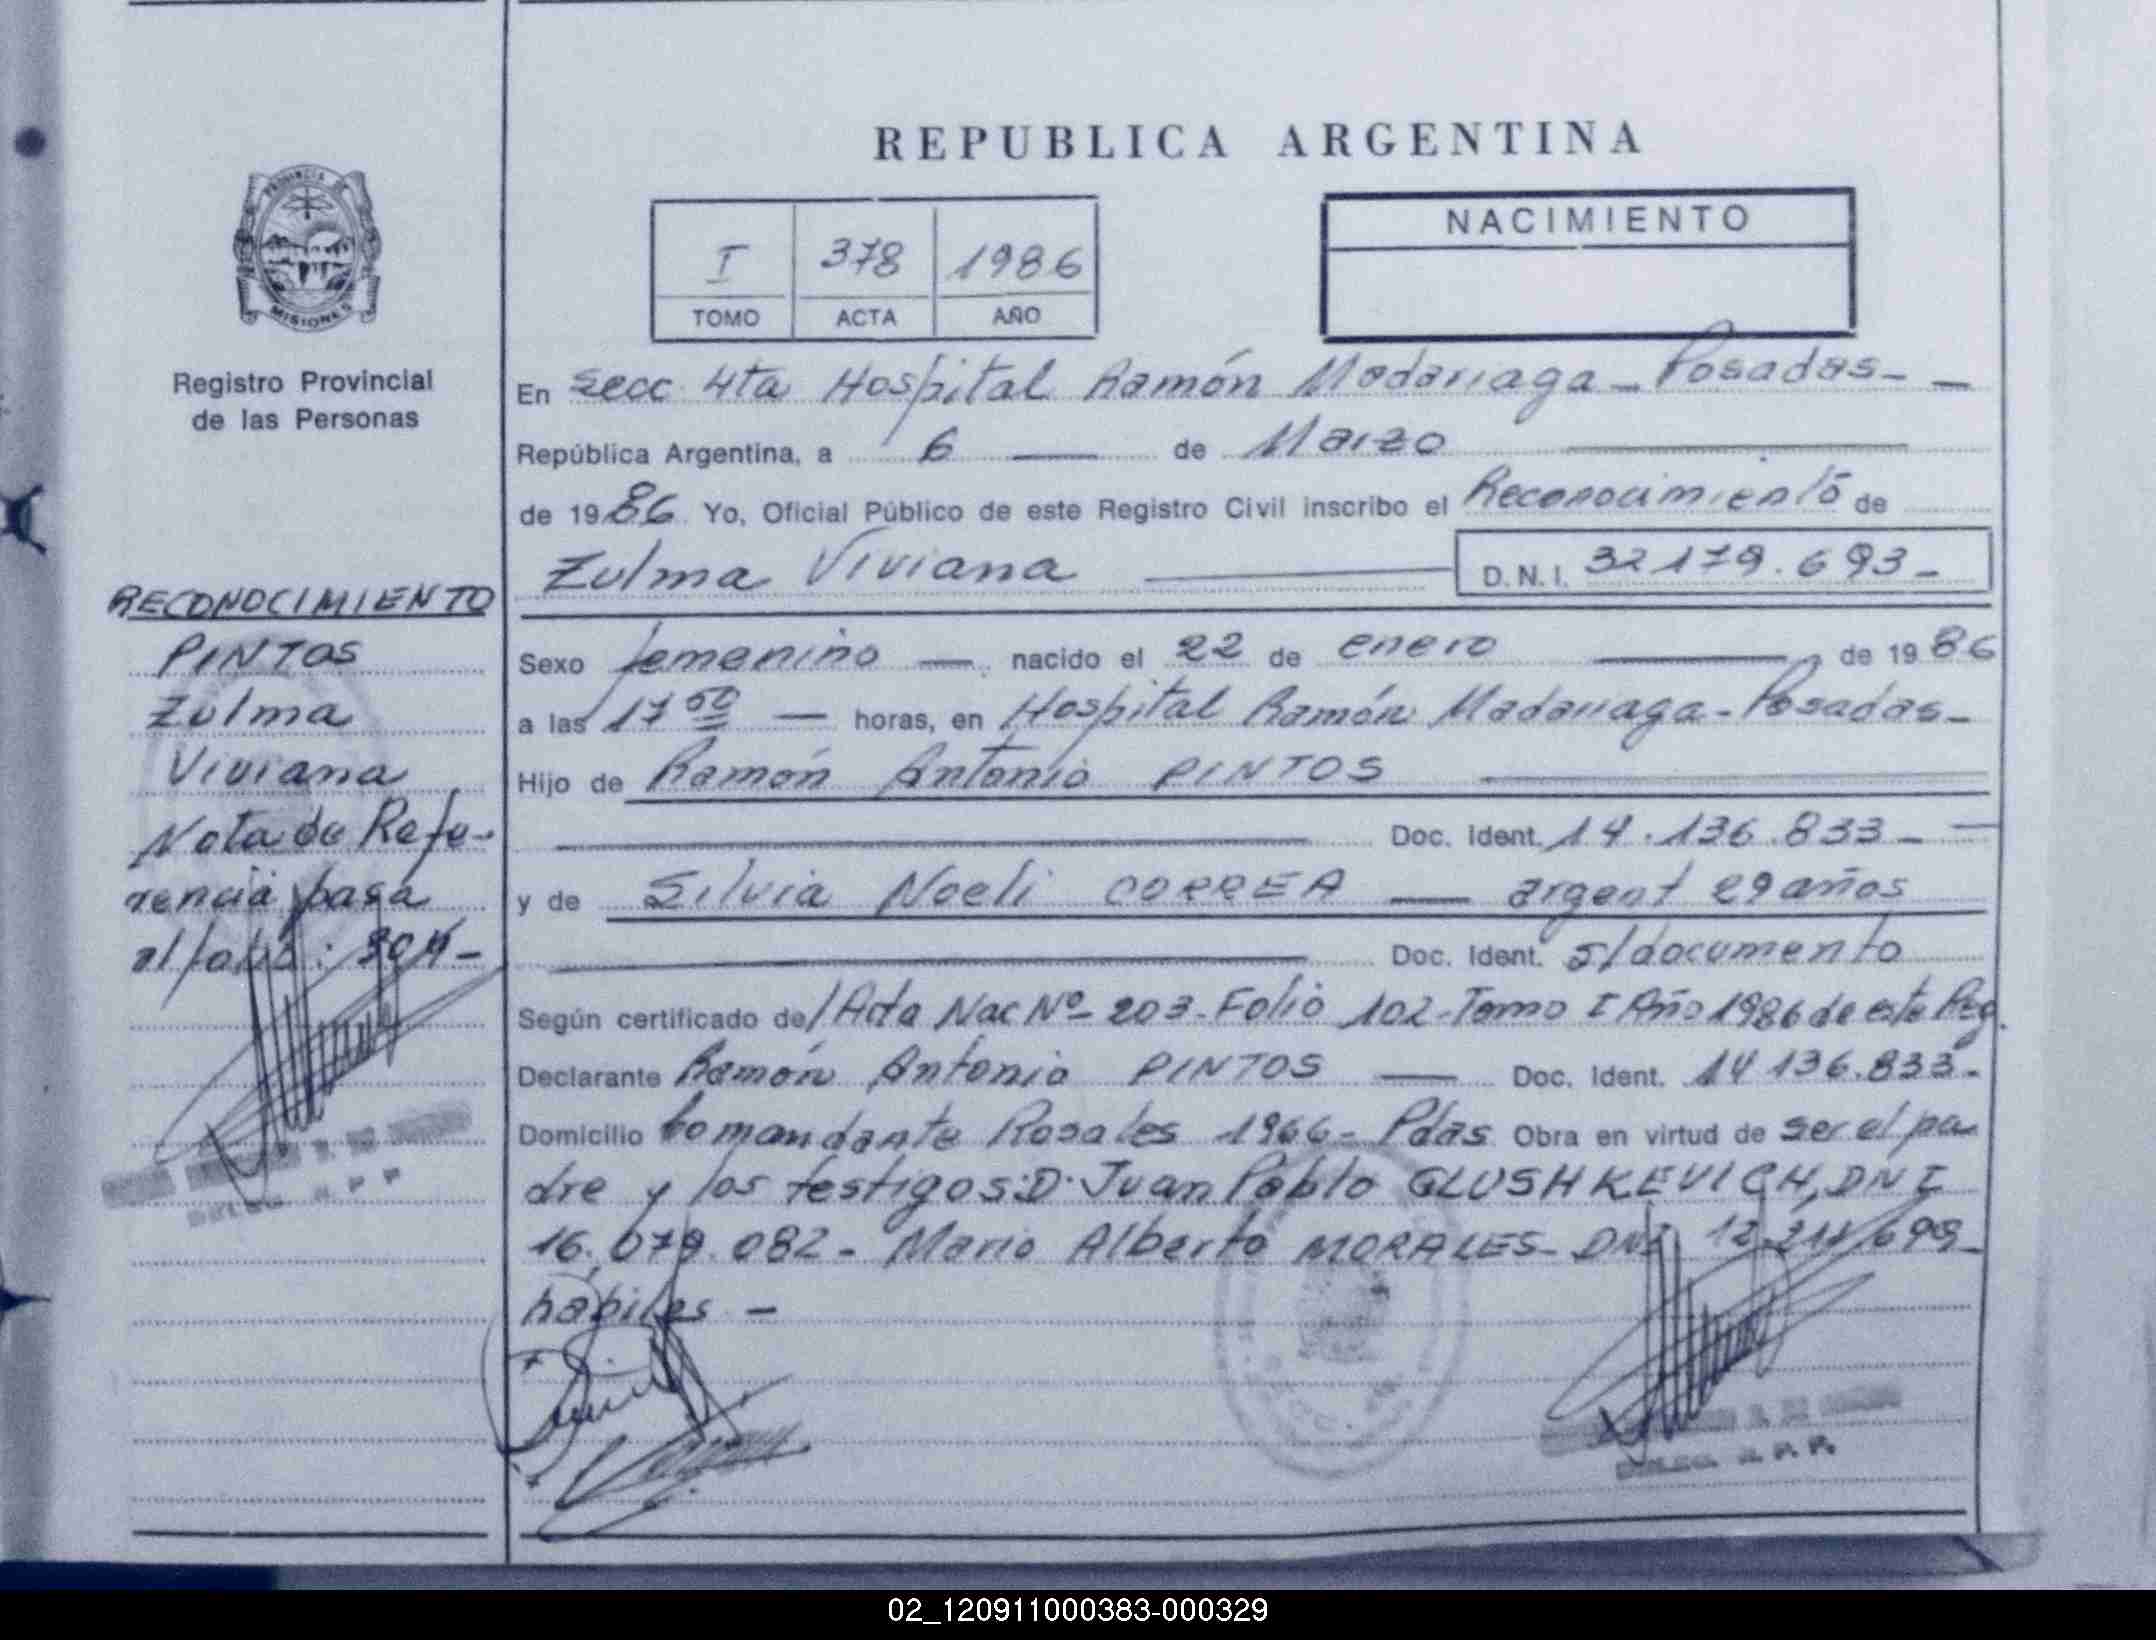 REPUBLICA ARGENTINA
PROVINCIA DE
MISIONES
Registro Provincial
de las Personas
I 378 1986
TOMO ACTA AÑO
NACIMIENTO
En Secc 4ta Hospital Ramón Madariaga - Posadas - -
República Argentina, a 6 — de Marzo
de 1986 Yo, Oficial Público de este Registro Civil inscribo el Reconocimiento de
Zulma Viviana — D.N.I. 32179.693-
RECONOCIMIENTO
PINTOS
Zulma
Viviana
Nota de Refe-
rencia pasa
al folio: 304-
Sexo femenino — nacido el 22 de enero — de 1986
a las 17 50 — horas, en Hospital Ramón Madariaga - Posadas -
Hijo de Ramón Antonio PINTOS
Doc. Ident. 14.136.833 -
y de Silvia Noeli CORREA — argent 29 años
Doc. Ident. s/documento
Según certificado de/Acta Nac Nº 203 - Folio 102 - Tomo I Año 1986 de este Reg.
Declarante Ramón Antonio PINTOS — Doc. Ident. 14 136.833 -
Domicilio Comandante Rosales 1966 - Pdas Obra en virtud de ser el pa
dre y los testigos: D. Juan Pablo GLUSHKEVICH, DNI
16.079.082 - Mario Alberto MORALES - DNI 12
hábiles -
02_120911000383-000329